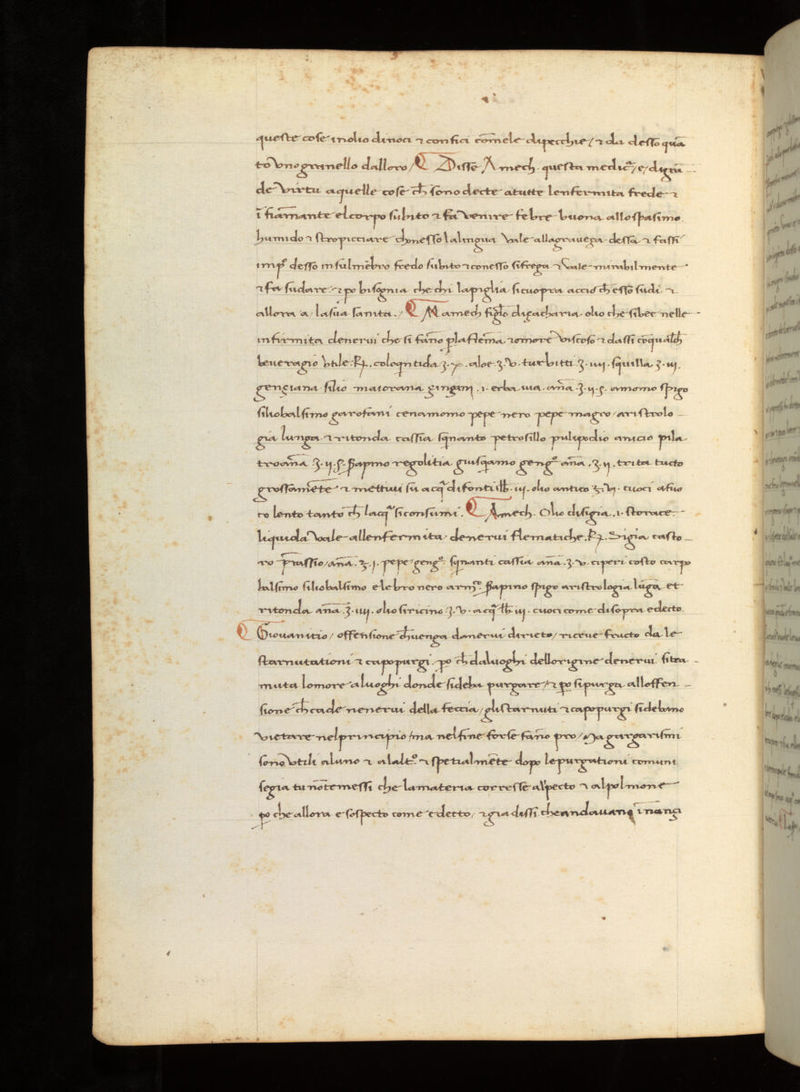 queste cose inolio dinoci ⁊ confici cōmele dipecchie / ⁊ da desso quā
to Vnogranello dalloro / ¶ Disse Amech. questa medicᵃ / e / digrā
de Virtu aquelle cose ch̄ sono decte atutte lenfermita frede ⁊
ī fiamante elcorpo subito ⁊ fa Venire febre buona allospasimo
humido ⁊ stropicciare chonesso lalingua Vale allagraueça dessa ⁊ fassi
desso insulmēbro fredo subito ⁊ conesso sifrega ⁊ Vale mirabilmente
⁊ fa sudare / ⁊ po bisognia che chi lapiglia sicuopra accio ch̄ esso sudi ⁊
allora a / lasua sanita. / ¶ Mamech figlo digacharia. olio che sibee nelle
infermita denerui che si fāno plaflēma ⁊ omore Viscoso ⁊ dassi coqualch
beueragio Vtile. coloqntida. aloe ʒ. V. turbitti ʒ. iiij. squilla. ʒ. iij.
gengiana silio maiorana gingem̄. i. erba iua. āna. ʒ. ij. amomo spigo
siliobalsimo garofani cenamomo pepe nero pepe magro aristrolo
gia lunga ⁊ ritonda cassia sqnanto petrosillo pulipodio anicio pila
tro āna. ʒ. ij. sapino regolitia giusqamo gengᵒ āna. ʒ. ij. trita tucto
grossamēte ⁊ mettiui sū acq̄ difonti lb. iij. olio antico. cuoci afuo
co lento tanto ch̄ lacqᵃ siconsumi. ¶ Amech. Olio disigia. i. storace
liquida Vale allenfermita denerui flematiche. Sigia casto
ro / āna. pepe gengᵒ sqnanti cassia āna. ʒ. V. ciperi costo carpo
balsimo siliobalsimo elebro nero sapino spigo aristrologia lūga et
ritonda āna. ʒ. iiij. olio siricino ʒ. V. acqᵃ lb. iij. cuoci come disopra edecto
¶ Giouanitio / offensione ch̄uenga danerui diricto / riceue fructo da le
starnutationi ⁊ capopurgi. po ch̄ daluoghi dellorigine denerui sitra
muta lomore aluoghi donde sideba purgare / ⁊ po sipurga. alloffen
sione ch̄ cade nenerui della feccia / glistarnuti ⁊ capopurgi sidebono
Vietare nelprincipio / ma nelfine forse fāno pro / Ma gargarismi
sono Vtili aluno ⁊ alaltᵒ ⁊ spetialmēte dopo lepurgationi comuni
segia tu nōtemessi che lamateria corresse alpecto ⁊ alpolmone
po che allora e sospecto come edecto / ⁊ gia dissi cheandauanq̄ inançi